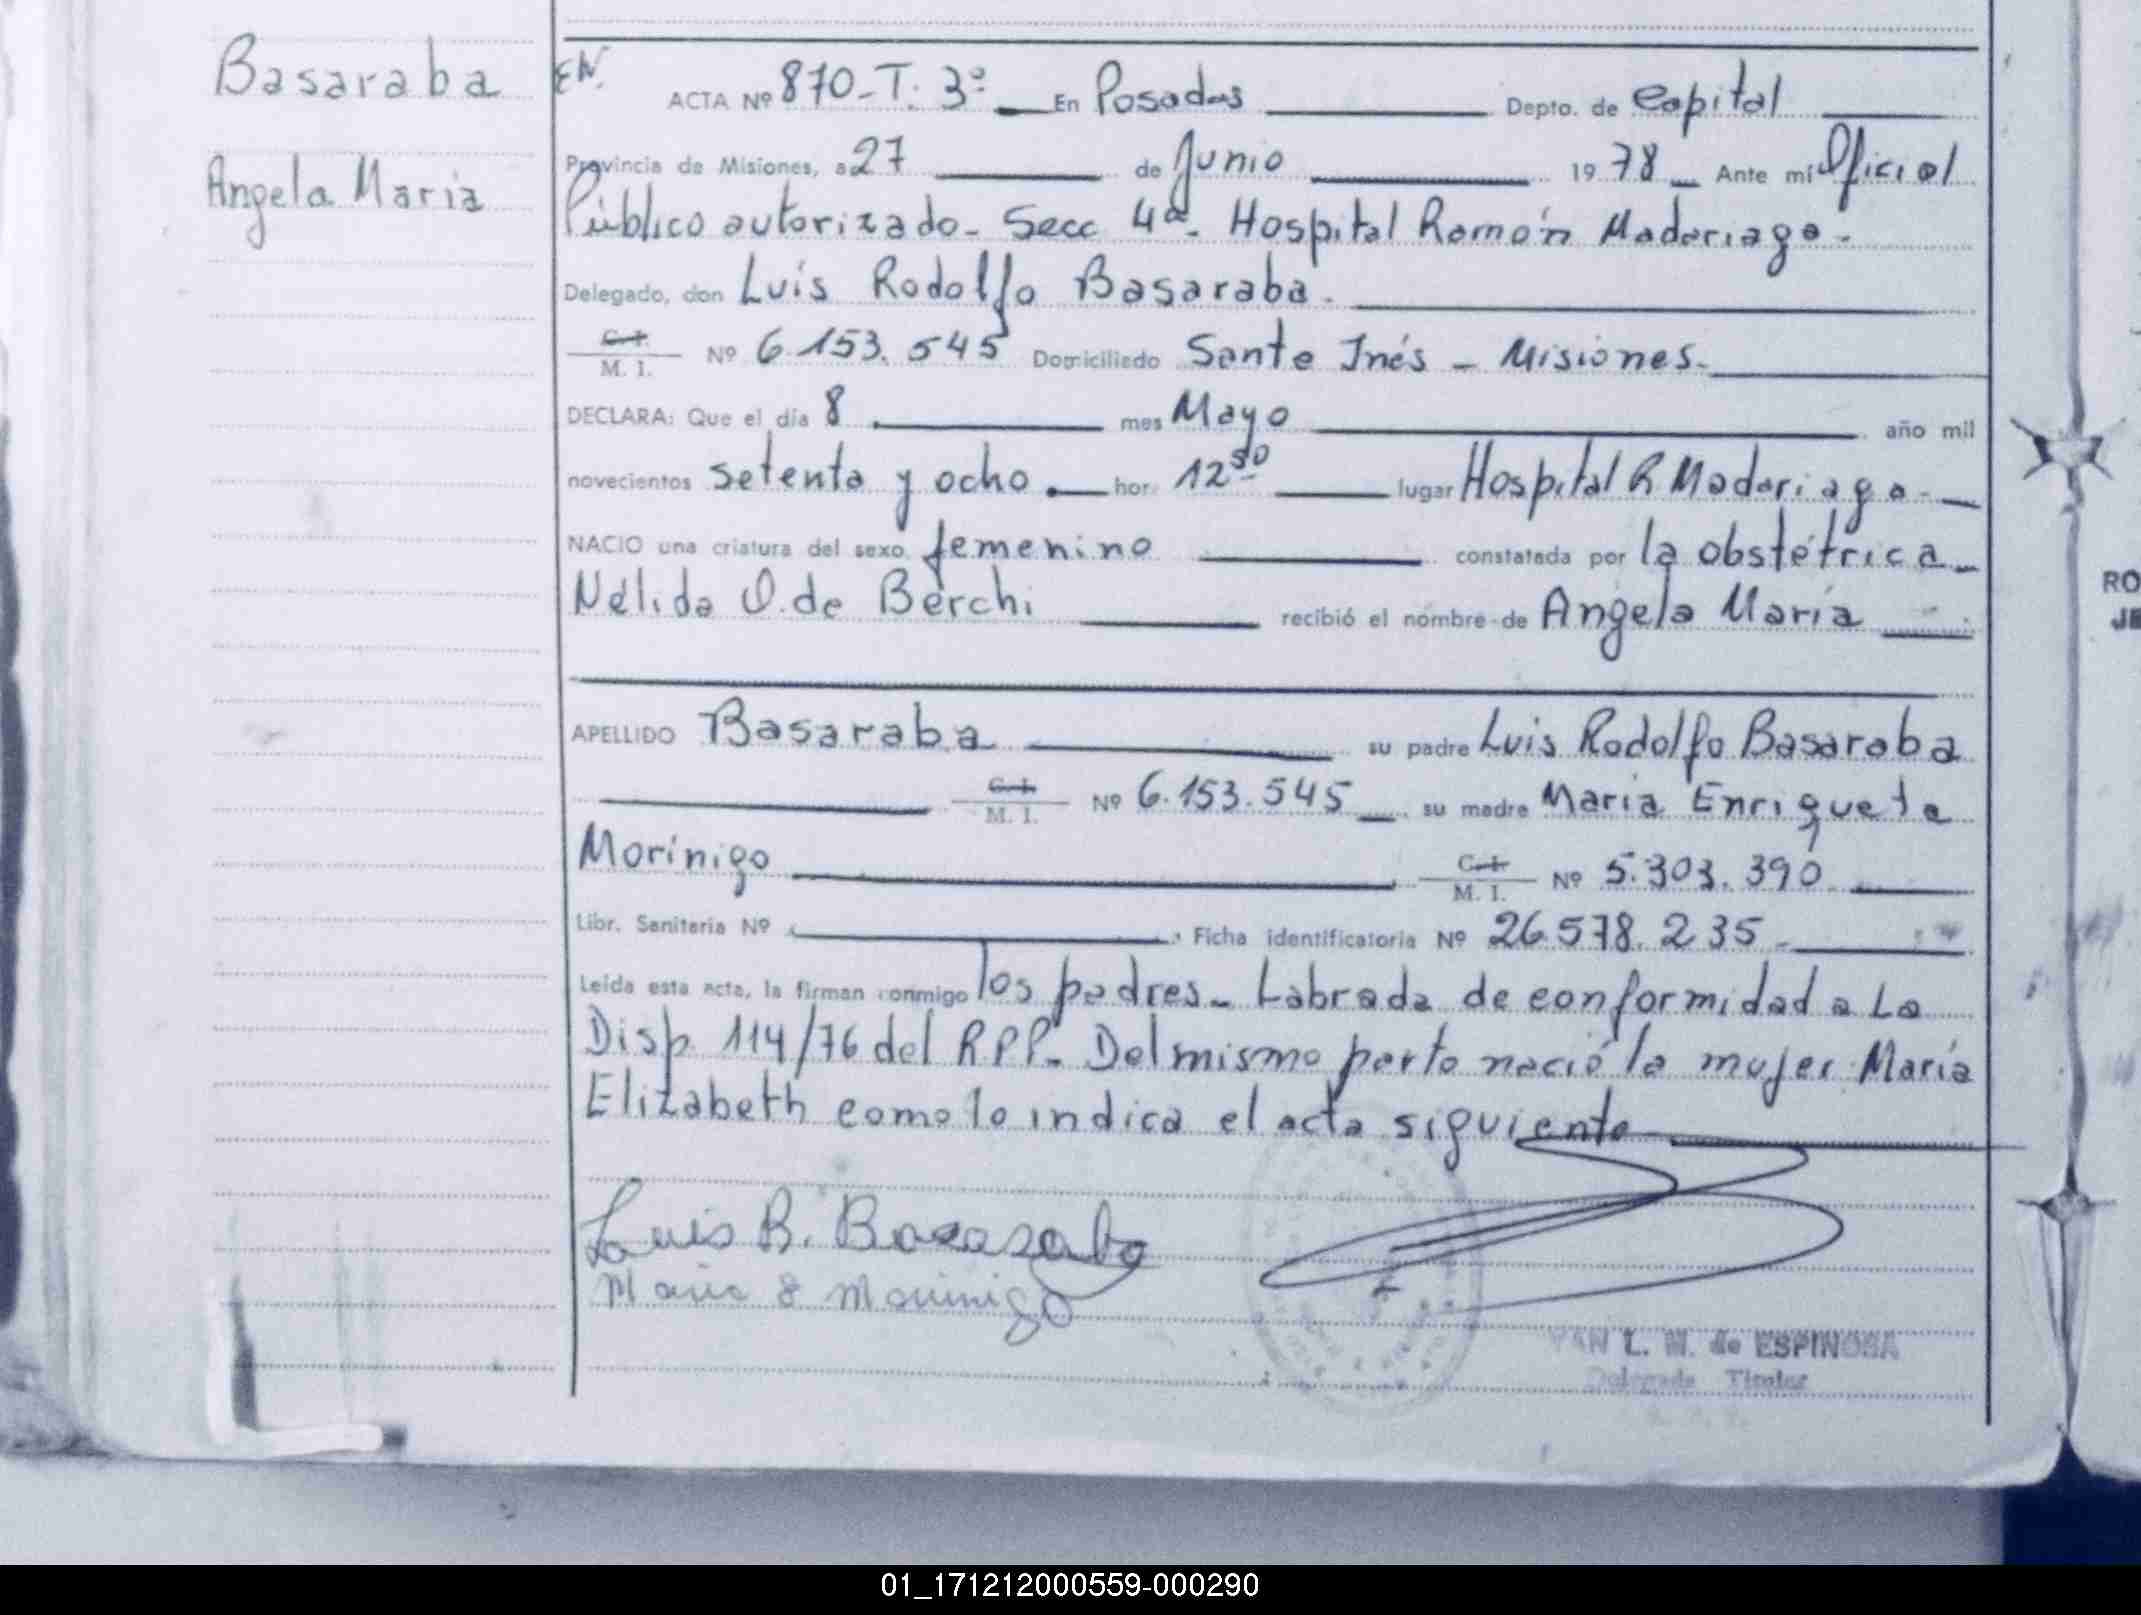 Basaraba
Angela María
EN. ACTA Nº 870-T. 3º En Posadas Depto. de Capital
Provincia de Misiones, a 27 de Junio 1978 Ante mi Oficial
Público autorizado- Secc 4a- Hospital Ramón Madariaga-
Delegado, don Luis Rodolfo Basaraba.
C. I. M. I. Nº 6.153.545 Domiciliado Santa Inés - Misiones-
DECLARA: Que el día 8 mes Mayo año mil
novecientos setenta y ocho hor. 12 50 lugar Hospital R Madariaga-
NACIO una criatura del sexo femenino constatada por la obstétrica-
Nélida O. de Berchi recibió el nombre de Angela María
APELLIDO Basaraba su padre Luis Rodolfo Basaraba
C. I. M. I. Nº 6.153.545 su madre María Enriqueta
Morínigo C. I. M. I. Nº 5.303.390
Libr. Sanitaria Nº Ficha identificatoria Nº 26.578.235-
Leída esta acta, la firman conmigo los padres- Labrada de conformidad a la
Disp. 114/76 del RPP- Del mismo parto nació la mujer María
Elizabeth como lo indica el acta siguiente
Luis B. Basaraba
Maria E Morinigo
L. M. de ESPINOSA
Delegada Titular
RO
JE
01_171212000559-000290